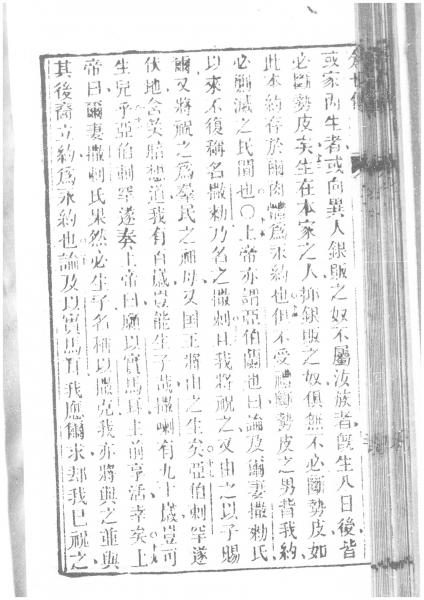 或家內生者或向異人銀販之奴不屬汝族者旣生八日後皆
必斷勢皮矣生在本家之人抑銀販之奴俱無不必斷勢皮如
此本約存於爾肉體為永約也但不受禮斷勢皮之男背我約
必剿滅之民間也○上帝亦謂亞伯罕也曰論及爾妻撒勑氏
以來不復稱名撒勑乃名之撒剌且我將祝之又由之以子賜
爾又將祝之為羣民之祖母又国王將由之生矣亞伯剌罕遂
伏地含笑暗想道我有百歲豈能生子哉撒喇有九十歲豈可
生兒乎亞伯剌罕遂奏上帝曰願以實馬耳上前享活幸矣上
帝曰爾妻撒剌氏果然必生子名稱以撒克我亦將與之並與
其後裔立約為永約也論及以實馬耳我應爾求却我已祝之